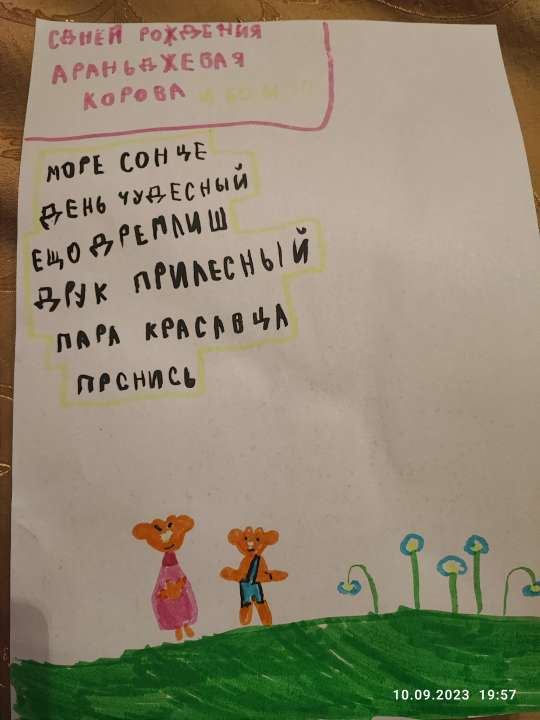 СДНЕЙ РОЖДЕНИЯ
АРАНЬДЖЕВАЯ
КОРОВА
МОРЕ СОНЦЕ
ДЕНЬ ЧУДЕСНЫЙ
ЕЩО ДРЕМЛИШ
ДРУК ПРИЛЕСНЫЙ
ПАРА КРАСАВЦА
ПРСНИСЬ
10.09.2023 19:57